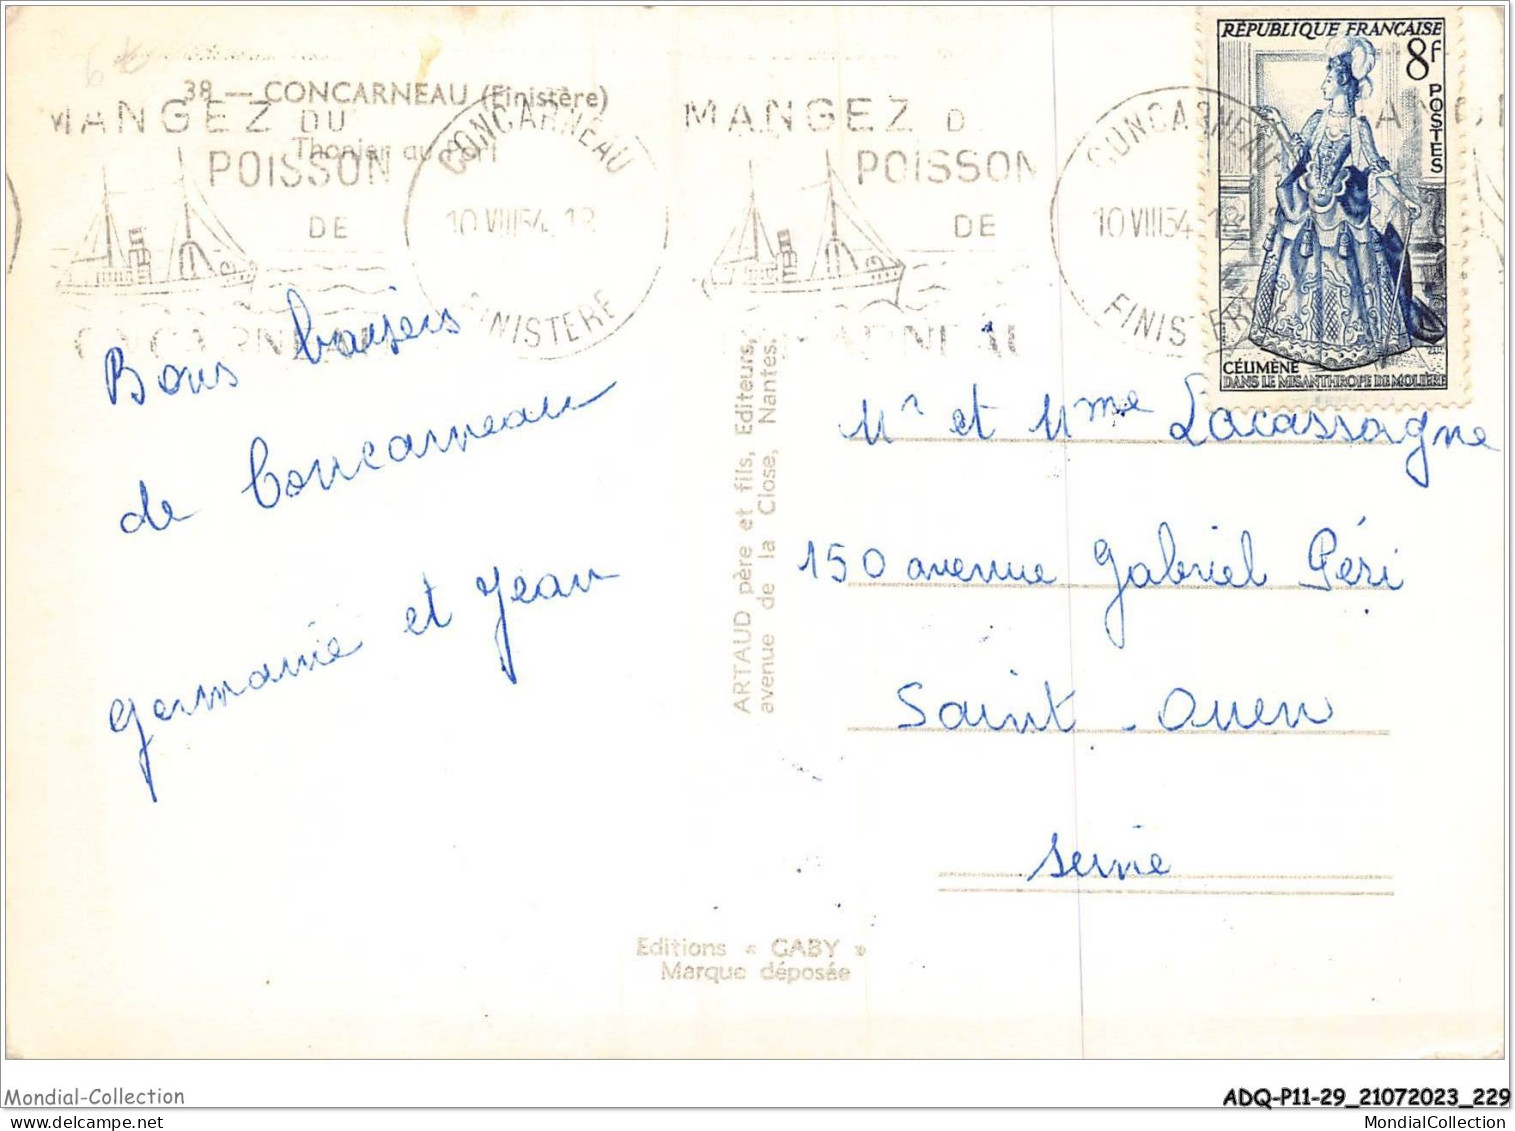 38 — CONCARNEAU (Finistère)
Thonier au Port
MANGEZ DU
POISSON
DE
CONCARNEAU
CONCARNEAU
10 VIII 54 18
FINISTERE
MANGEZ D
POISSON
DE
CONCARNEAU
10 VIII 54 18
FINISTERE
RÉPUBLIQUE FRANÇAISE
8f
POSTES
CÉLIMÈNE
DANS LE MISANTHROPE DE MOLIÈRE
Bons baisers
de Concarneau
Germanie et Jean
ARTAUD père et fils, Editeurs,
avenue de la Close, Nantes.
Mr et Mme Lacassagne
150 avenue Gabriel Péri
Saint-Ouen
Seine
Editions « GABY »
Marque déposée
Mondial-Collection
ADQ-P11-29_21072023_229
MondialCollection